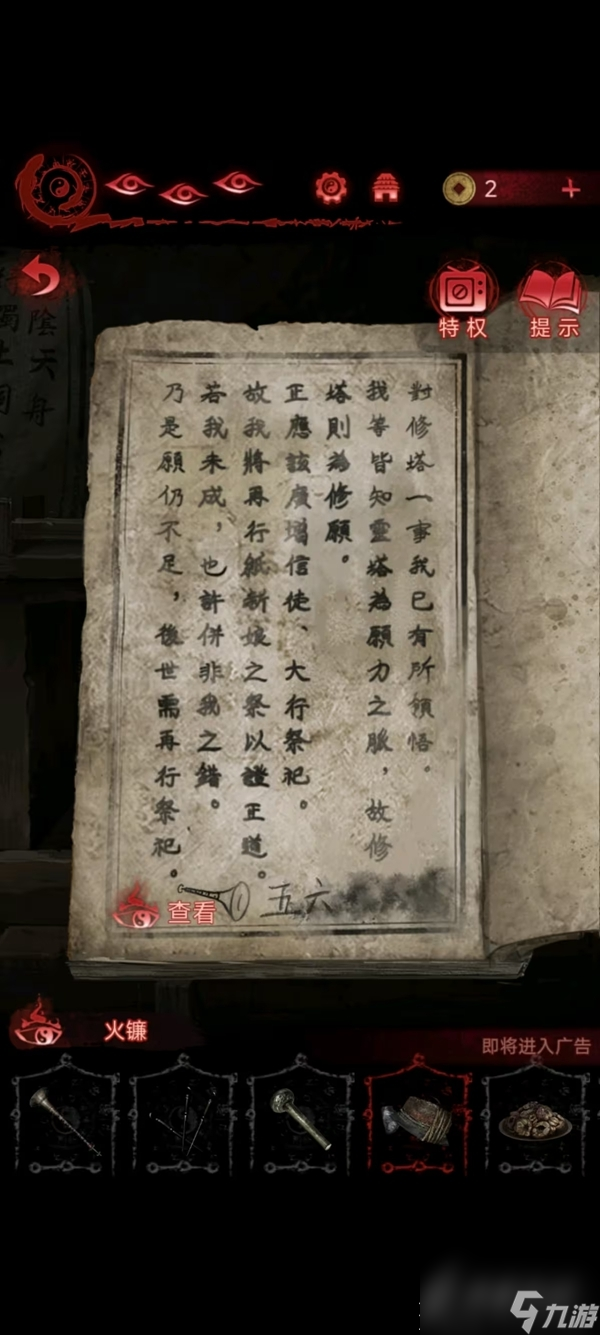 2
特权
提示
對修塔一事我已有所領悟。
我等皆知靈塔為願力之脈，故修
塔則為修願。
正應該廣增信徒、大行祭祀。
故我將再行紙新娘之祭以證正道。
若我未成，也許併非我之錯。
乃是願仍不足，後世需再行祭祀。
陰天舟
查看
五六
火镰
即将进入广告
九游